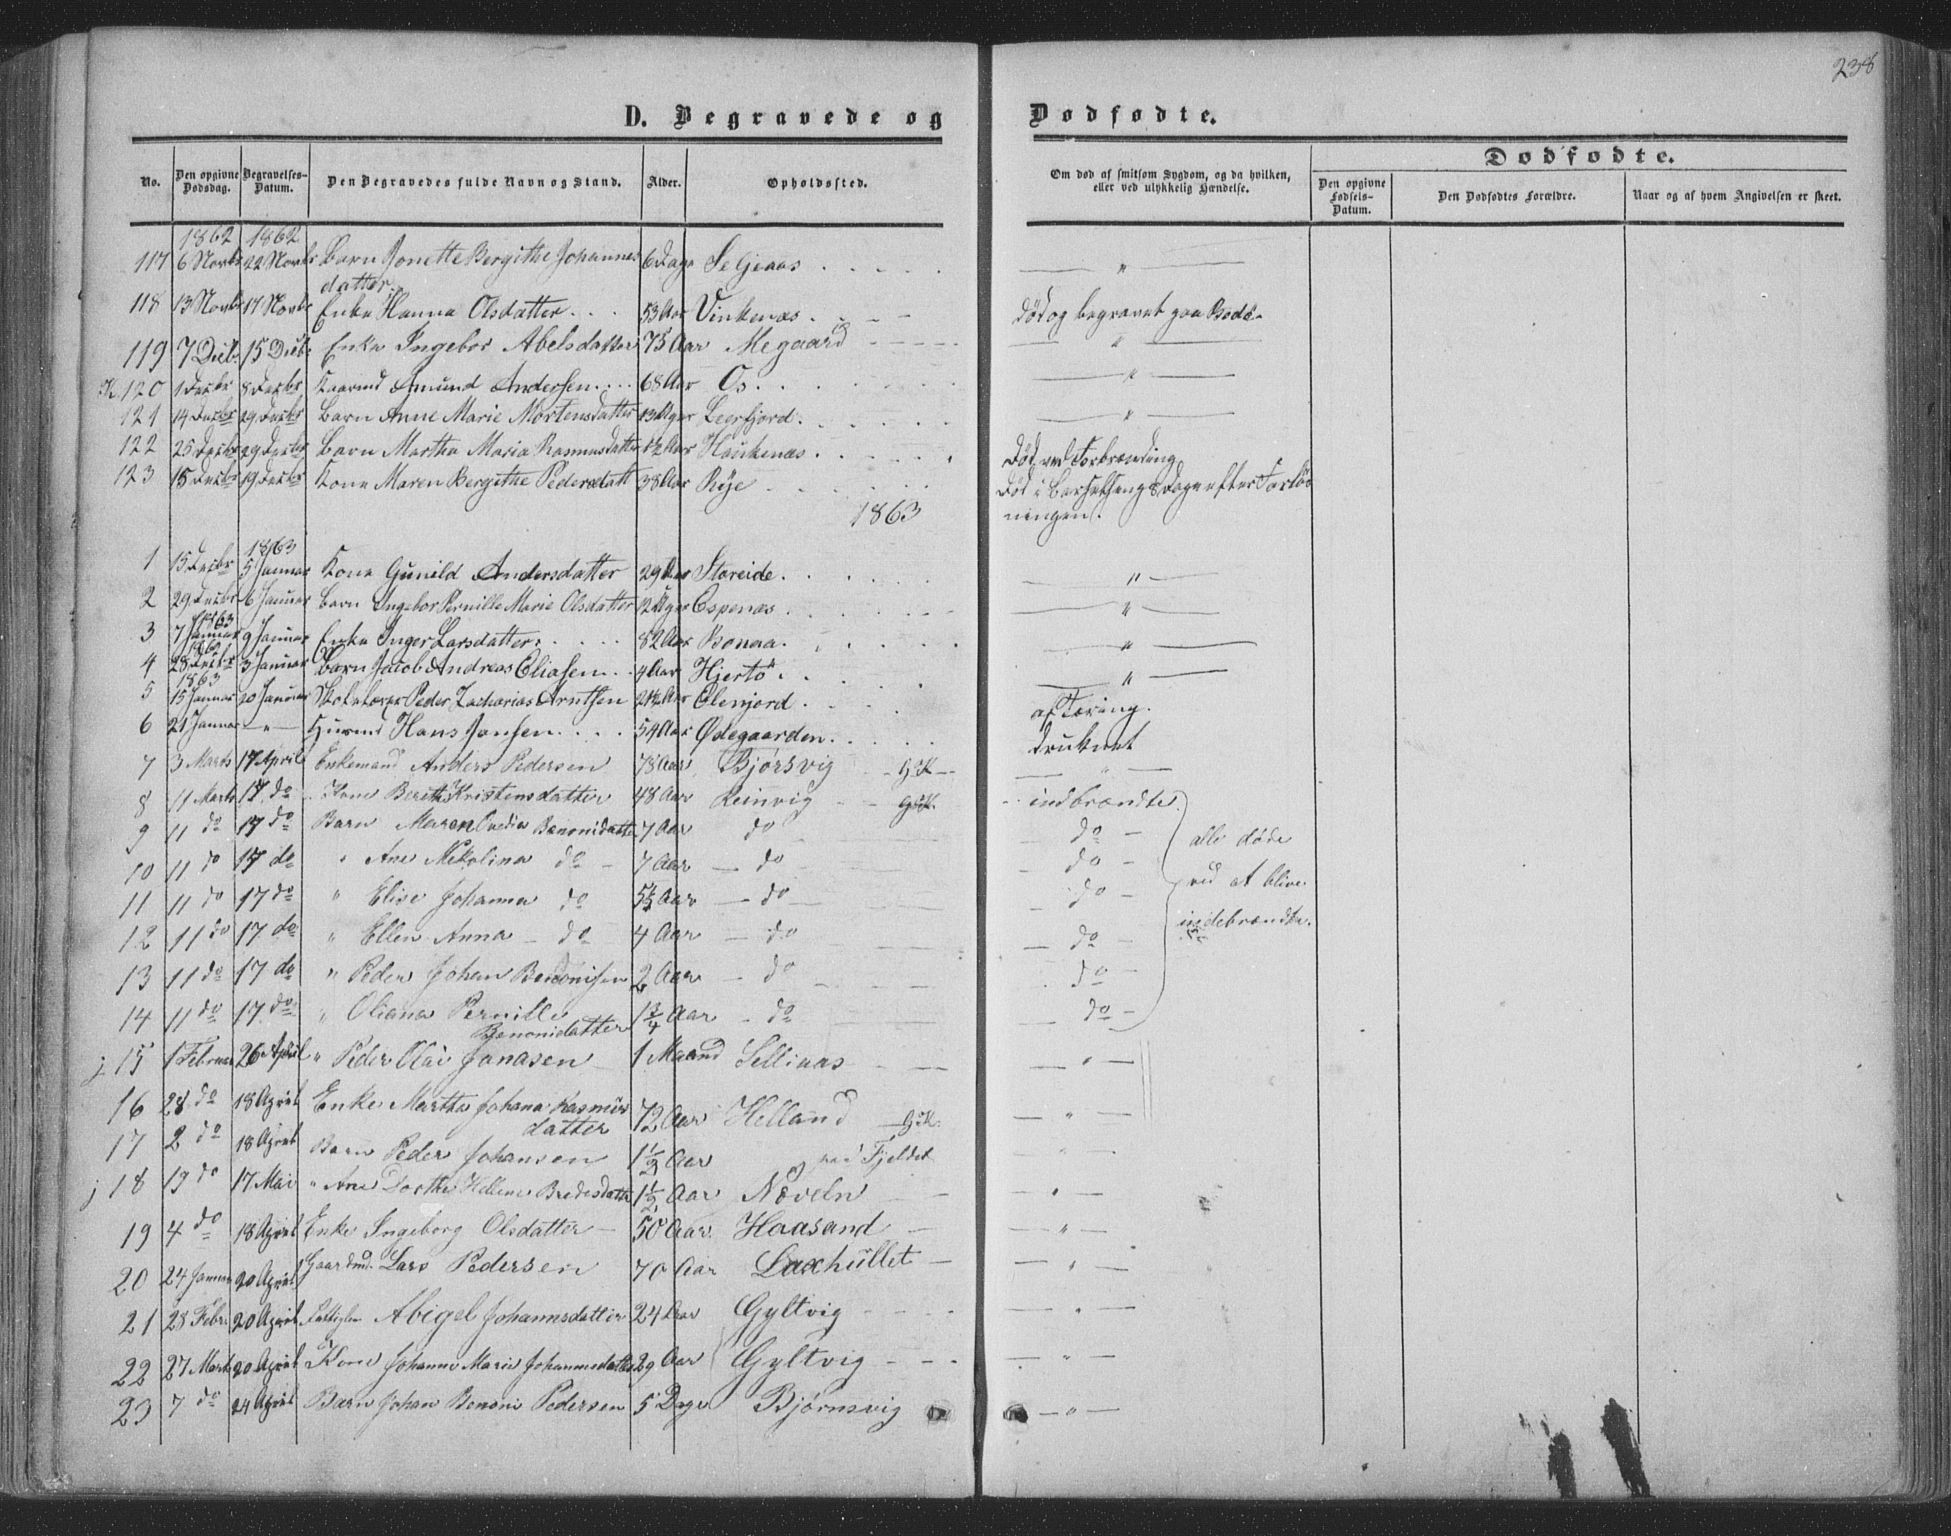 238
D. Begravede og Dødfødte.
No. Den opgivne Dødsdag. Begravelses-Datum. Den Begravedes fulde Navn og Stand. Alder. Opholdssted. Om død af smitsom Sygdom, og da hvilken, eller ved ulykkelig Hændelse. Dødfødte.
Den opgivne Fødsels-Datum. Den Dødfødtes Forældre. Naar og af hvem Angivelsen er skeet.
1862 1862
117 6 Novbr 22 Novbr Barn Jonette Bergithe Johannes 6 Dage — " —
datter.
118 13 Novbr 17 Novbr Enke Hanna Olsdatter 53 Aar Vinkenæs Død og begravet paa Bodø.
119 7 Decb. 15 Decb. Enke Ingebor Abelsdatter 75 Aar Megaard — " —
K. 120 1 Decbr 8 Decbr Kaarmd Amund Andersen 68 Aar Os. — " —
121 14 Decbr 29 Decbr Barn Anne Marie Mortensdatter 13 Uger Leerfjord. — " —
122 25 Decbr 29 Decbr Barn Martha Maria Rasmusdatter 1½ Aar Haukenæs Død ved Forbrænding
123 15 Decbr 19 Decbr Kone Maren Bergithe Pedersdatt 38 Aar Røje Død i Barselseng 8 Dage efter Forløs
ningen.
1863
1863
1 15 Decbr 5 Januar Kone Gunild Andersdatter 29 Aar Storeide. — " —
2 29 Decbr 6 Januar Barn Ingebor Pernille Marie Olsdatter 12 Uger Espenæs — " —
1863
3 7 Januar 9 Januar Enke Inger Larsdatter 82 Aar Bonaa. — " —
1862
4 28 Decbr 3 Januar Barn Jacob Andreas Eliasen 4 Aar Hjertø — " —
1863
5 15 Januar 20 Januar Skolelærer Peder Zacharias Arntsen 21½ Aar Elenjord af Tæring.
6 21 Januar — " — Huusmd Hans Jansen 54 Aar Ødegaarden druknet
7 3 Marts 17 April Enkemand Anders Pedersen 78 Aar Bjørsvig — G.K. — — " —
8 11 Marts 17 do Kone Berith Kristensdatter 48 Aar Reinvig — G.K. indbrændte
9 11 do 17 do Barn Maren Benonidatter 7 Aar do do — alle døde
10 11 do 17 do " Ane Nikolina do 7 Aar — do do — ved at blive
11 11 do 17 do " Elise Johanna do 5½ Aar — do do — indebrændte.
12 11 do 17 do " Ellen Anna — do 4 Aar — do do —
13 11 do 17 do " Peder Johan Benonisen 2 Aar — do do —
14 11 do 17 do " Oliana Pernille 1¾ Aar — do do —
Benonidatter
j 15 1 Februar 26 April " Peder Olai Jonasen 1 Maaned Selliaas — " —
16 28 do 18 April Enke Martha Johana Rasmus 72 Aar Helland — G.K. — " —
datter
17 2 do 18 April Barn Peder Johansen 1½ Aar ved Fjeldet — " —
j 18 19 do 17 Mai " Ane Dorthe Hellene Bredesdatter 1½ Aar Næveln — " —
19 4 do 18 April Enke Ingeborg Olsdatter 50 Aar Haasand — " —
20 24 Januar 20 April Gaardmd. Lars Pedersen 70 Aar Laxhullet — " —
21 28 Febr. 20 April Abigel Johannsdatter 24 Aar Gyltvig — " —
22 27 Marts 20 April Kone Johanne Marie Johannesdatter 29 Aar Gyltvig — " —
23 7 do 24 April Barn Johan Benoni Pedersen 5 Dage Bjørnsvig — " —